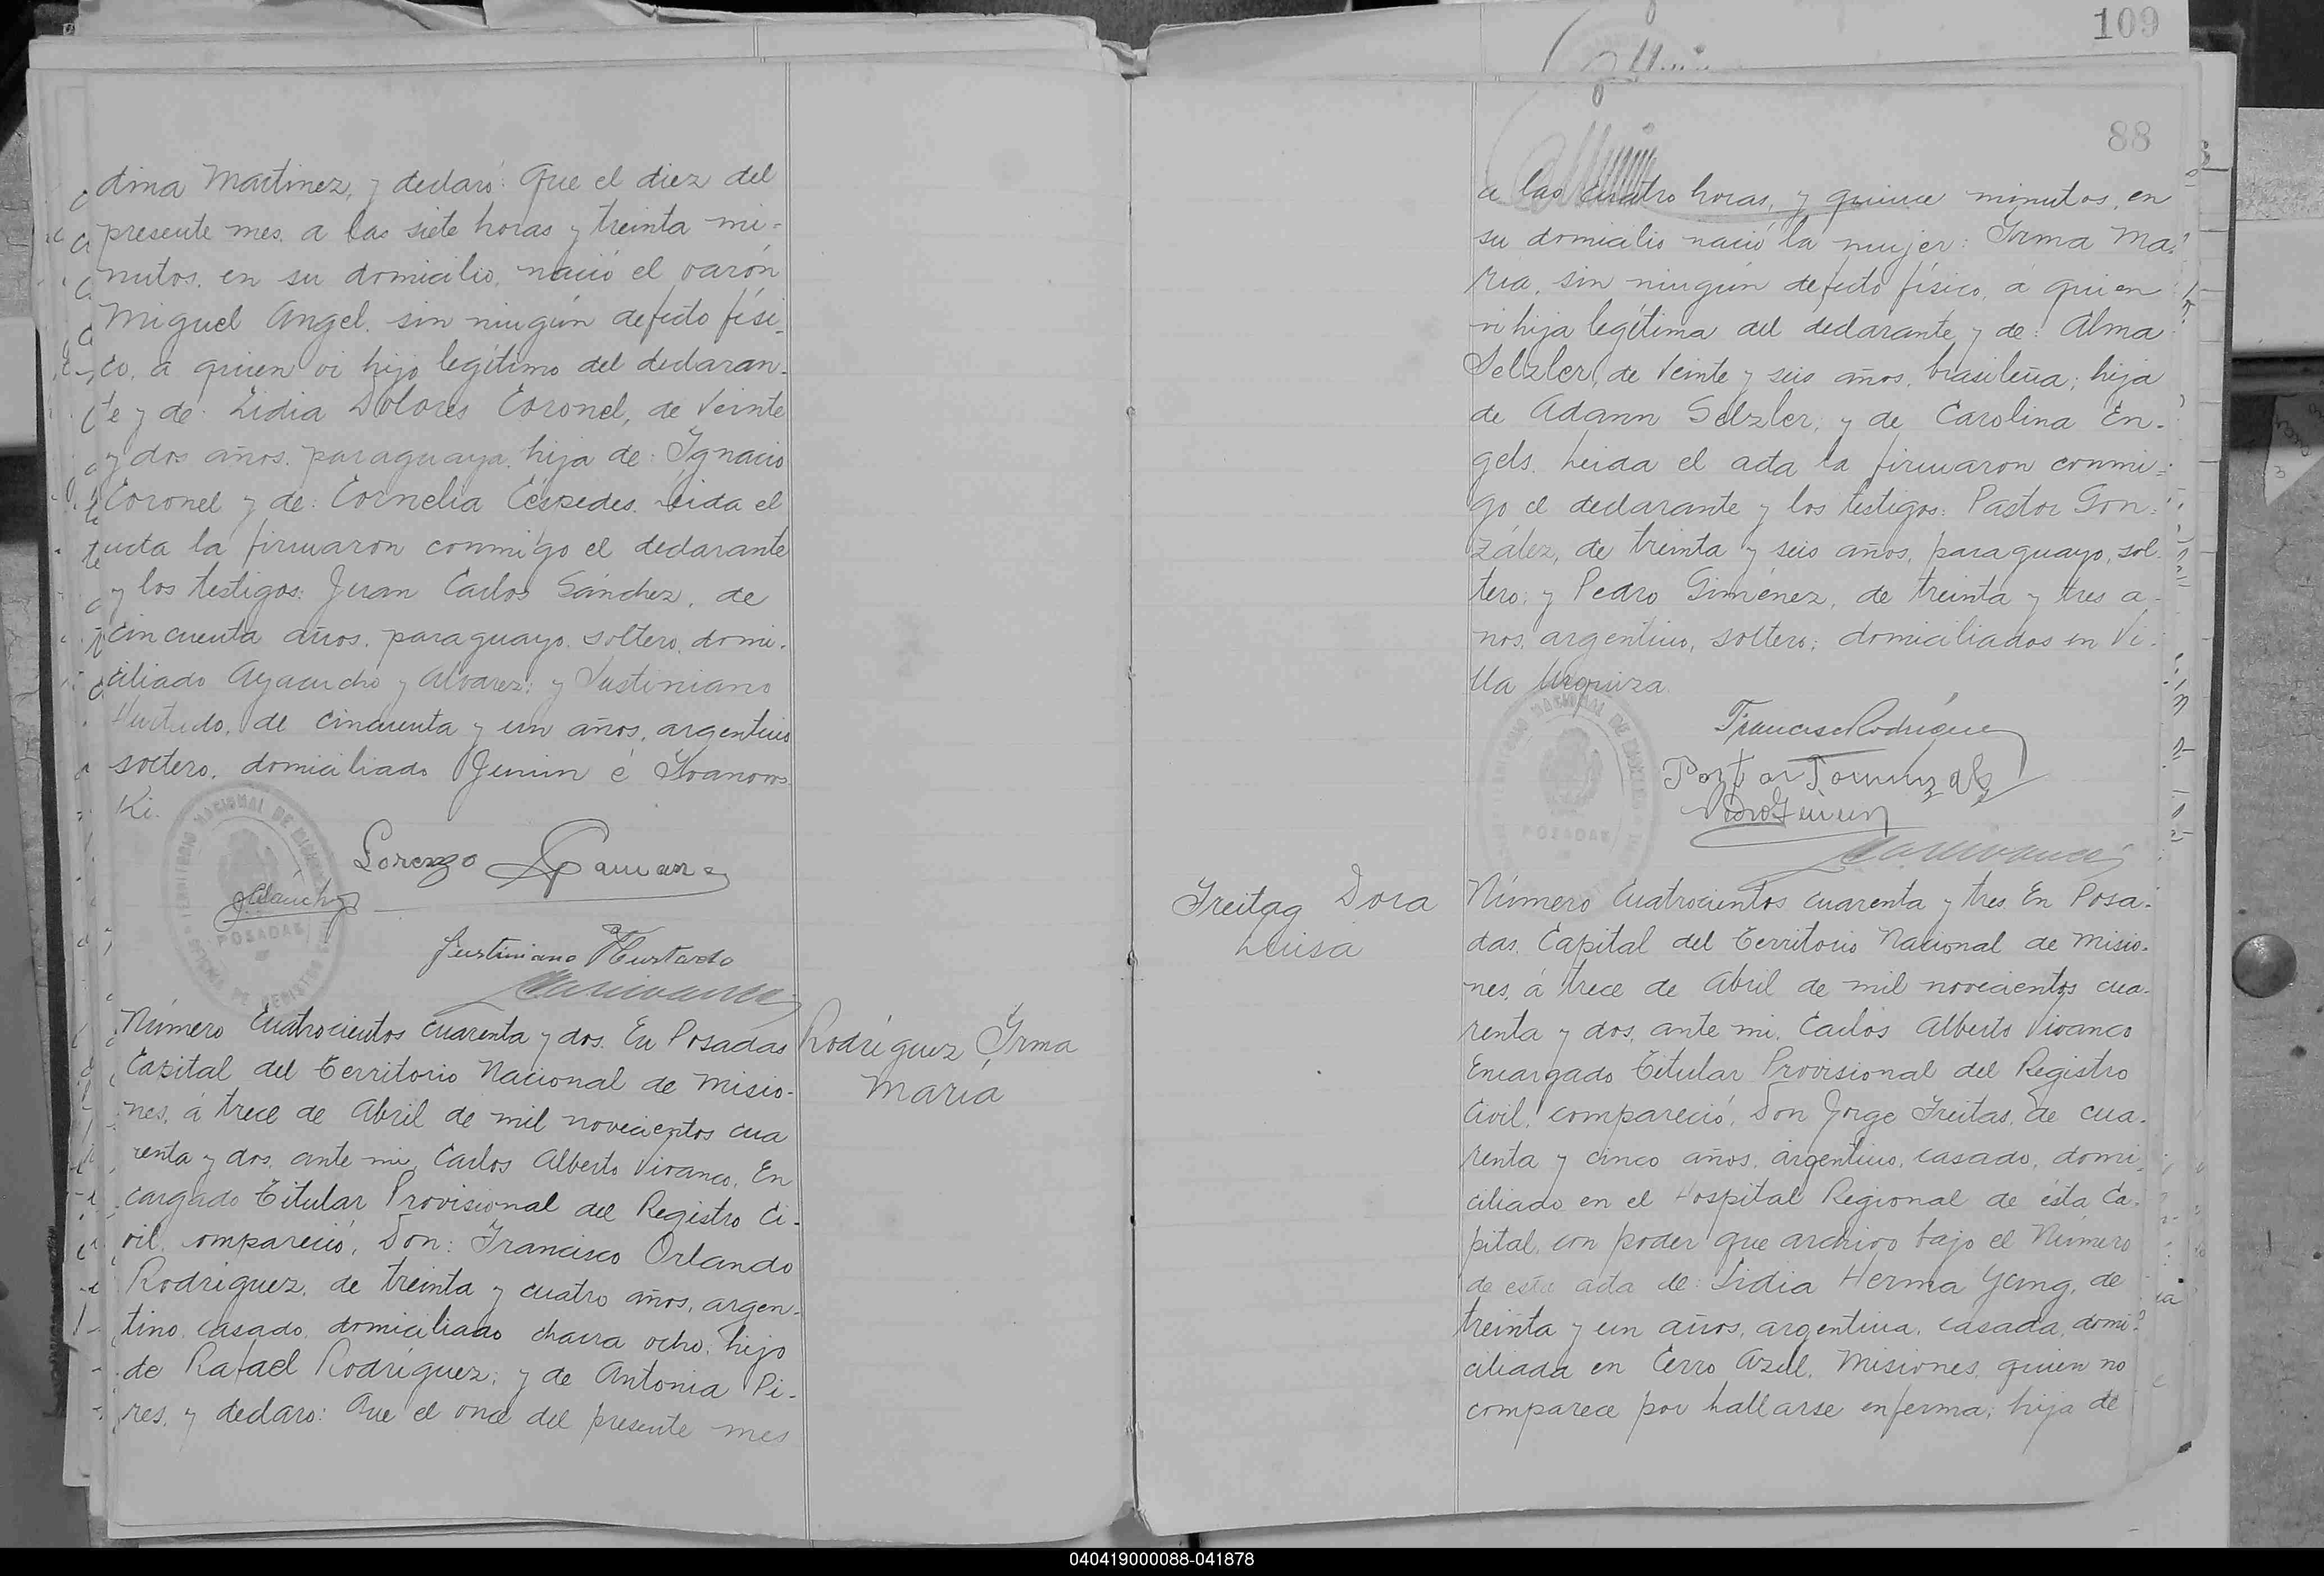 109
dina Martinez, y declaró: Que el diez del
presente mes. a las siete horas y treinta mi-
nutos. en su domicilio. nació el varón
Miguel Angel. sin ningún defecto físi-
co, a quien vi hijo legítimo del declaran-
te y de: Lidia Dolores Coronel, de veinte
y dos años. paraguaya. hija de: Ignacio
Coronel y de: Cornelia Céspedes. Leida el
acta la firmaron conmigo el declarante
y los testigos: Juan Carlos Sánchez, de
cincuenta años. paraguayo. soltero. domi-
ciliado Ayacucho y Alvarez; y Justiniano
Hurtado, de cincuenta y un años, argentino
soltero. domiciliado Junin é Ivanows
Ki.
Lorenzo
JCSánchez
POSADAS
Justiniano Hurtado
Número Cuatrocientos cuarenta y dos. En Posadas
Capital del Territorio Nacional de Misio-
nes, á trece de Abril de mil novecientos cua
renta y dos, ante mi, Carlos Alberto Vivanco, En
cargado Titular Provisional del Registro Ci-
vil. compareció, Don: Francisco Orlando
Rodriguez, de treinta y cuatro años, argen-
tino. casado. domiciliado chacra ocho. hijo
de Rafael Rodriguez; y de Antonia Pi-
res, y declaro: Que el once del presente mes
Rodriguez Irma
María
88
a las cuatro horas, y quince minutos, en
su domicilio nació la mujer: Irma Ma-
ria, sin ningún defecto físico, á quien
vi hija legítima del declarante y de: Alma
Selzler, de veinte y seis años, brasileña; hija
de Adann Selzler; y de Carolina En-
gels. Leida el acta la firmaron conmi-
go el declarante y los testigos: Pastor Gon-
zález, de treinta y seis años, paraguayo, sol-
tero; y Pedro Giménez, de treinta y tres a-
nos, argentino, soltero; domiciliados en Vi-
lla Urquiza.
Francisco Rodríguez
POSADAS
Freitag Dora
Luisa
Número Cuatrocientos cuarenta y tres. En Posa-
das, Capital del Territorio Nacional de Misio-
nes, á trece de Abril de mil novecientos cua-
renta y dos, ante mi, Carlos Alberto Vivanco
Encargado Titular Provisional del Registro
Civil, compareció, Don Jorge Freitas, de cua-
renta y cinco años, argentino, casado, domi-
ciliado en el Hospital Regional de ésta Ca-
pital, con poder que archivo bajo el Número
de esta acta de: Lidia Herma Yung, de
treinta y un años, argentina, casada, domi-
ciliada en Cerro Azul, Misiones, quien no
comparece por hallarse enferma; hija de
040419000088-041878